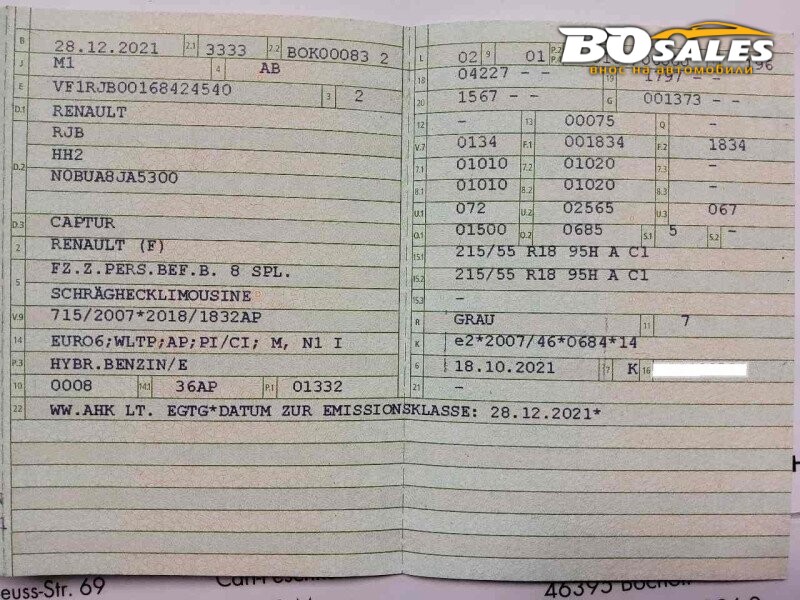 BOSALES
внос на автомобили
B 28.12.2021 2.1 3333 2.2 BOK00083 2
J M1 4 AB
E VF1RJB00168424540 3 2
D.1 RENAULT
RJB
D.2 HH2
N0BUA8JA5300
D.3 CAPTUR
2 RENAULT (F)
5 FZ.Z.PERS.BEF.B. 8 SPL.
SCHRÄGHECKLIMOUSINE
V.9 715/2007*2018/1832AP
14 EURO6;WLTP;AP;PI/CI; M, N1 I
P.3 HYBR.BENZIN/E
10 0008 14.1 36AP P.1 01332
22 WW.AHK LT. EGTG*DATUM ZUR EMISSIONSKLASSE: 28.12.2021*
L 02 9 01
18 04227 - - 19 1797 - -
20 1567 - - G 001373 - -
12 - 13 00075 Q -
V.7 0134 F.1 001834 F.2 1834
7.1 01010 7.2 01020 7.3 -
8.1 01010 8.2 01020 8.3 -
U.1 072 U.2 02565 U.3 067
O.1 01500 O.2 0685 S.1 5 S.2 -
15.1 215/55 R18 95H A C1
15.2 215/55 R18 95H A C1
15.3 -
R GRAU 11 7
K e2*2007/46*0684*14
6 18.10.2021 17 K 16
21 -
euss-Str. 69
46395